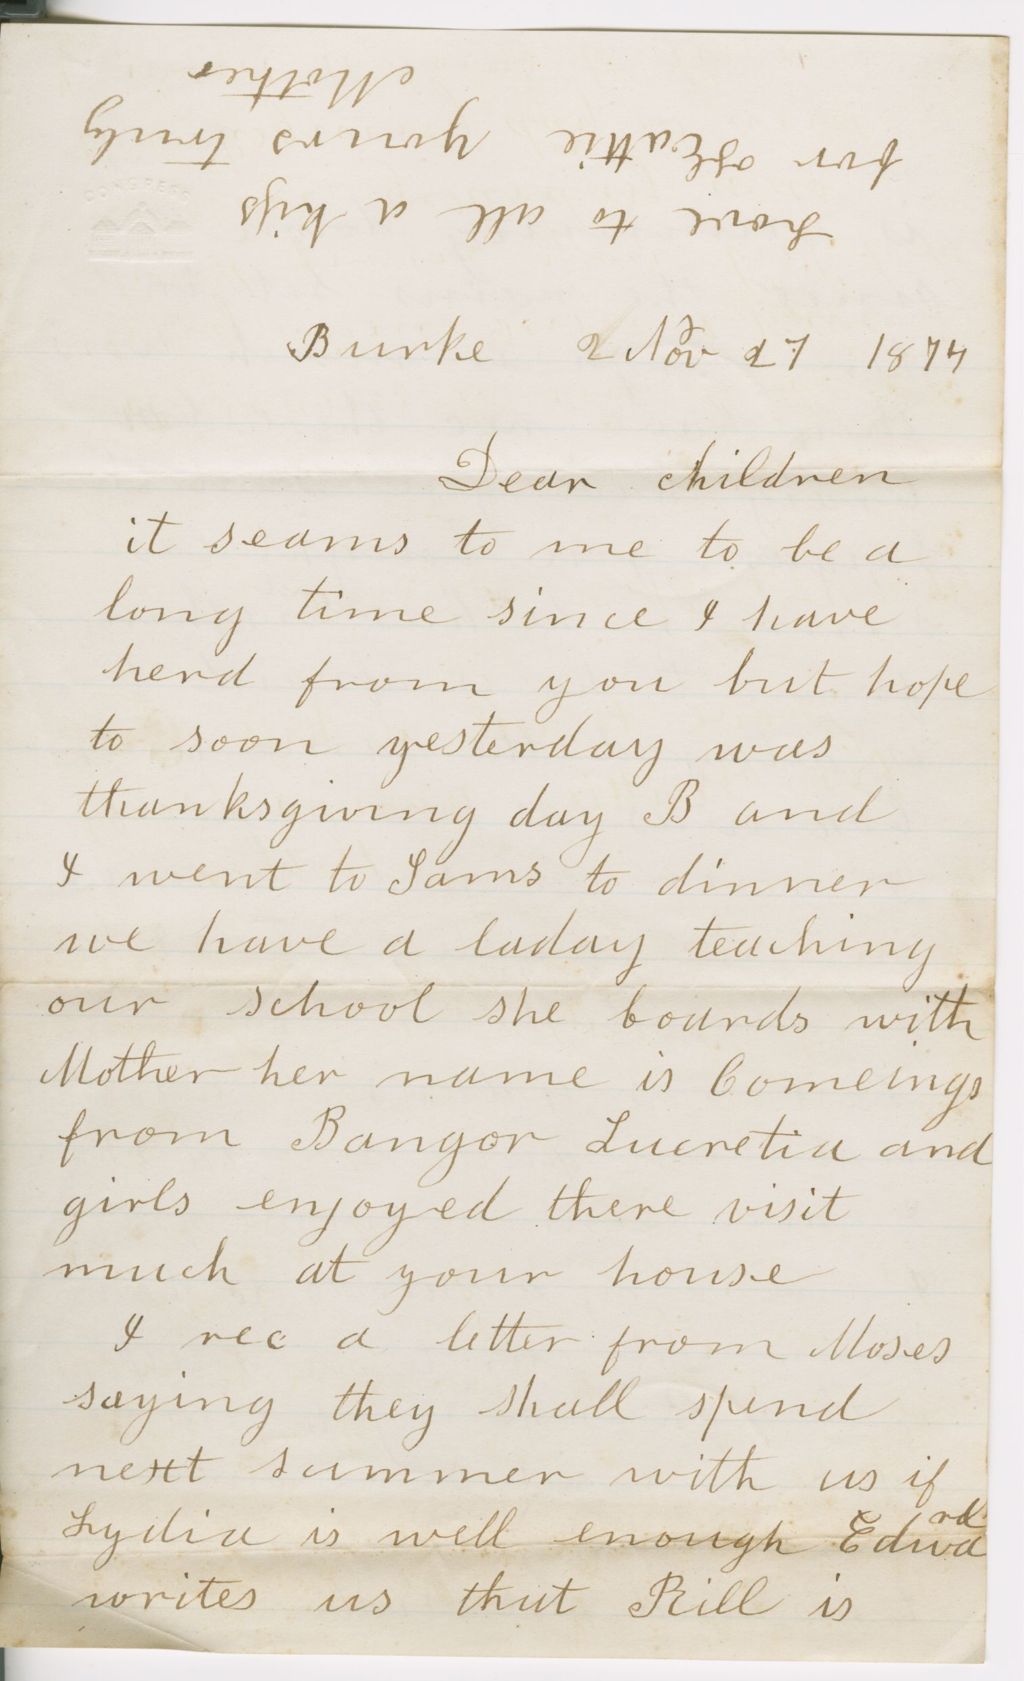 love to all a kiss
for Hattie yours truly
Mother
CONGRESS
Burke Nov 27 1874
Dear children
it seams to me to be a
long time since I have
herd from you but hope
to soon yesterday was
thanksgiving day B and
I went to Sams to dinner
we have a laday teaching
our school she boards with
Mother her name is Comeings
from Bangor Lucretia and
girls enjoyed there visit
much at your house
I rec a letter from Moses
saying they shall spend
next summer with us if
Lydia is well enough Edward
writes us that Rill is